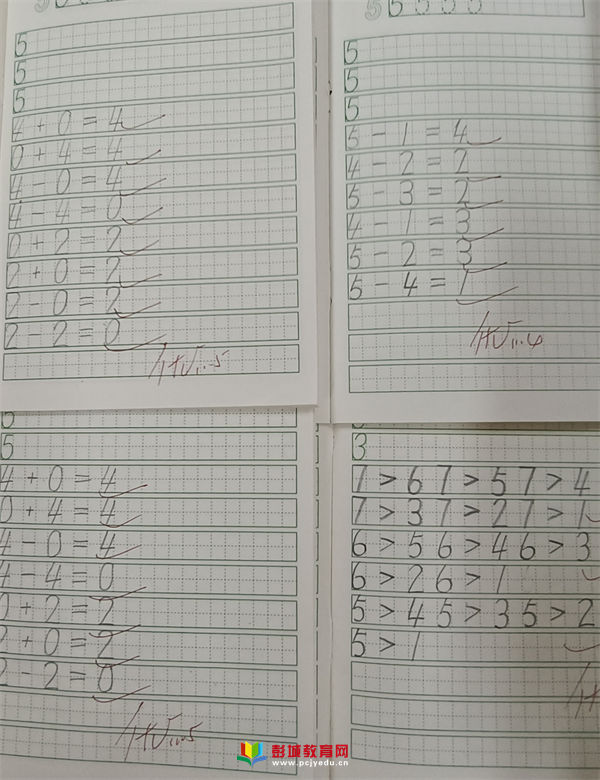 5 5 5 5 5
5
5
5
4+0=4
0+4=4
4-0=4
4-4=0
0+2=2
2+0=2
2-0=2
2-2=0
5
5
5
5-1=4
4-2=2
5-3=2
4-1=3
5-2=3
5-4=1
5
5
4+0=4
0+4=4
4-0=4
4-4=0
0+2=2
2+0=2
2-2=0
3
7>6 7>5 7>4
7>3 7>2 7>1
6>5 6>4 6>3
6>2 6>1
5>4 5>3 5>2
5>1
彭城教育网
www.pcjyedu.cn